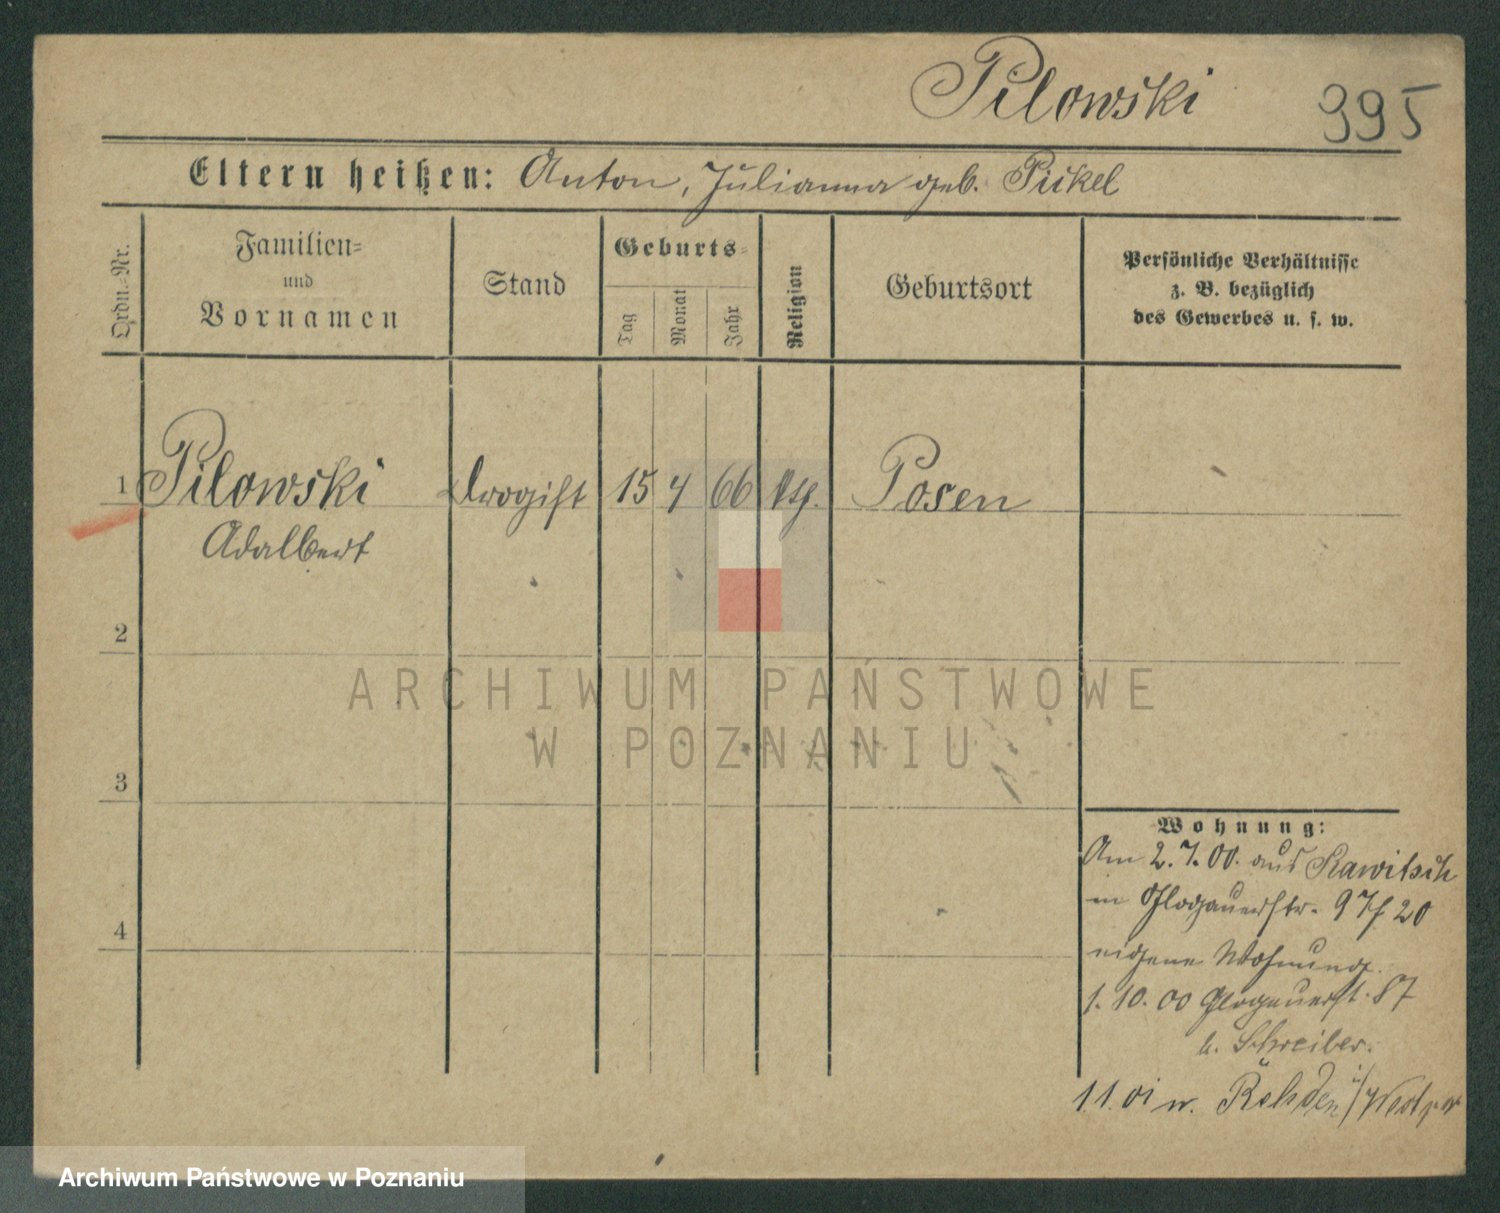 Pilowski 395
Eltern heißen: Anton, Julianna geb. Pickel
Ordn.-Nr.
Familien-
und
Vornamen
Stand
Geburts-
Tag
Monat
Jahr
Religion
Geburtsort
Persönliche Verhältnisse
z. B. bezüglich
des Gewerbes u. s. w.
1 Pilowski Drogist 15 4 66 Posen
Adalbert
2
3
4
Wohnung:
Am 2.7.00. aus Rawitsch
in Glogauerstr. 97 20
eigene Wohnung.
1.10.00 Glogauerst. 87
b. Schreiber.
1.1.01 n. Rehden i/Westpr
ARCHIWUM PAŃSTWOWE
W POZNANIU
Archiwum Państwowe w Poznaniu